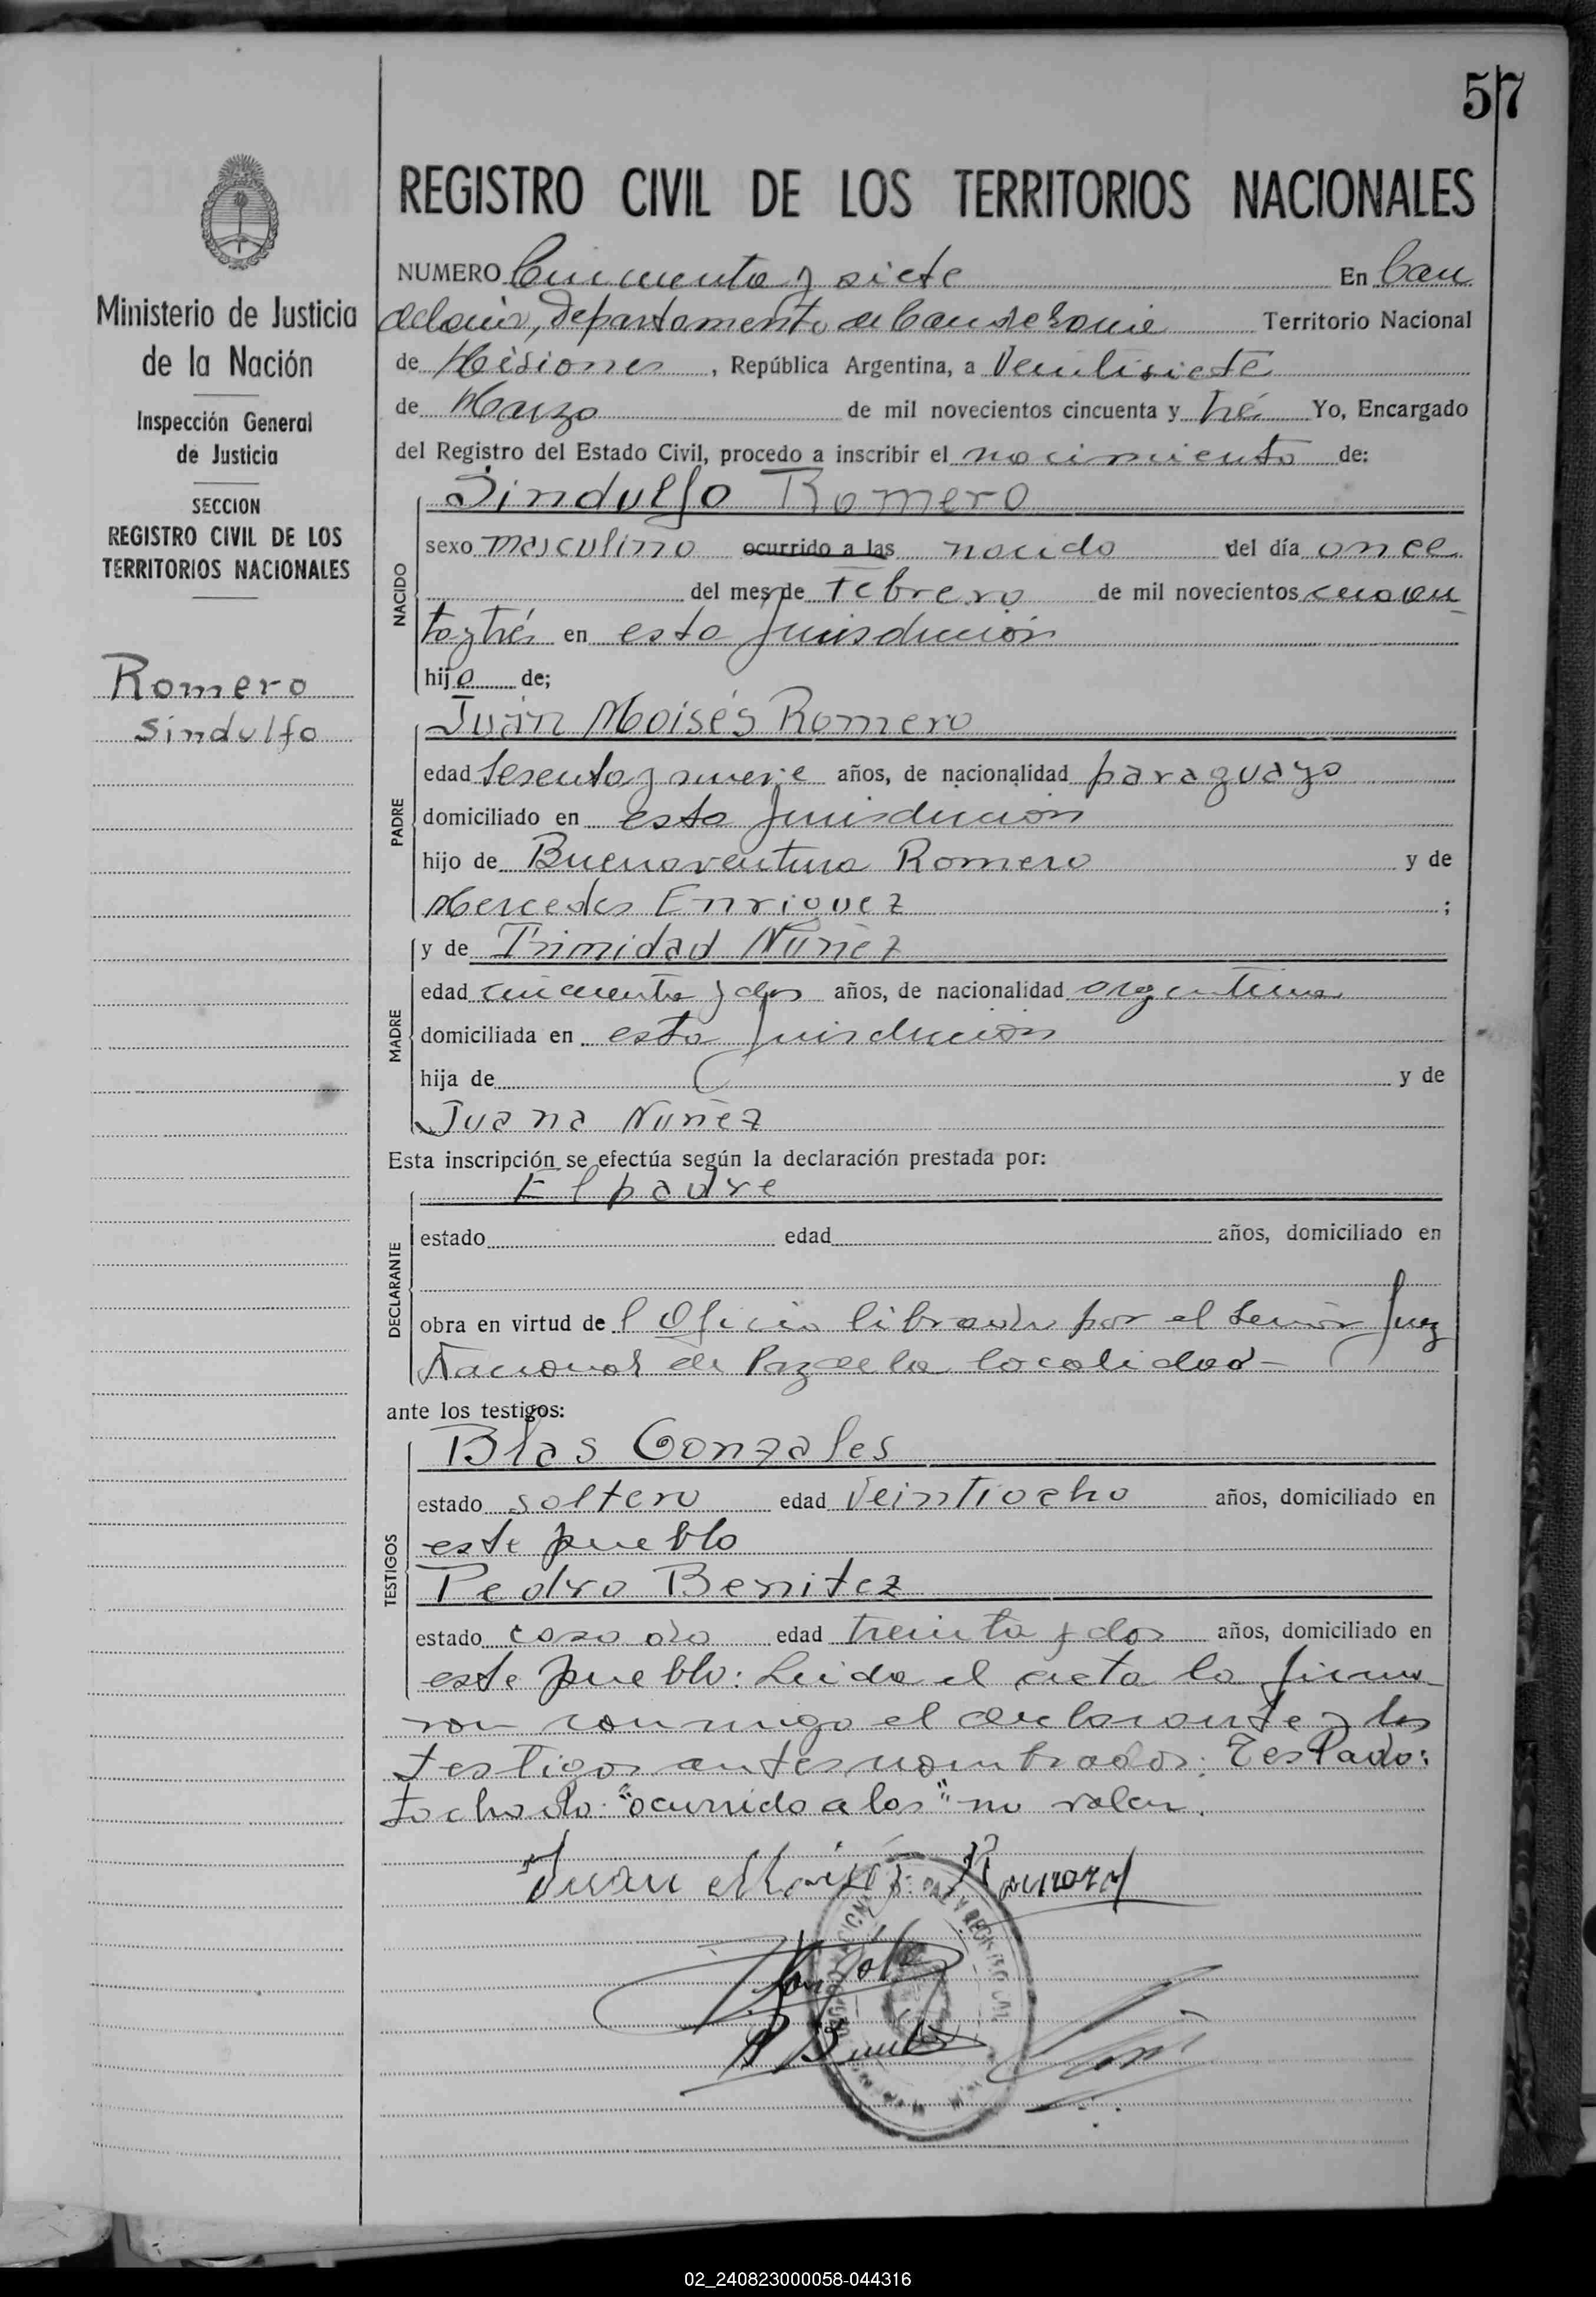 57
REGISTRO CIVIL DE LOS TERRITORIOS NACIONALES
Ministerio de Justicia
de la Nación
Inspección General
de Justicia
SECCION
REGISTRO CIVIL DE LOS
TERRITORIOS NACIONALES
Romero
Sindulfo
NUMERO Cincuenta y siete En Can
delaria, Departamento de Candelaria Territorio Nacional
de Misiones, República Argentina, a Veintisiete
de Marzo de mil novecientos cincuenta y tré Yo, Encargado
del Registro del Estado Civil, procedo a inscribir el nacimiento de:
NACIDO
Sindulfo Romero
sexo masculino ocurrido a las nacido del día once
del mes de Febrero de mil novecientos cincuen
ta y trés en esta jurisdicción
hijo de;
PADRE
Juán Moisés Romero
edad Sesenta y nueve años, de nacionalidad paraguayo
domiciliado en esta jurisdiccion
hijo de Buenaventura Romero y de
Mercedes Enriquez ;
MADRE
y de Trinidad Nuñez
edad cincuenta y dos años, de nacionalidad argentina
domiciliada en esta jurisdiccion
hija de y de
Juana Nuñez
Esta inscripción se efectúa según la declaración prestada por:
DECLARANTE
El padre
estado edad años, domiciliado en
obra en virtud de l Oficio librado por el Señor Juez
Nacional de Paz de la localidad-
ante los testigos:
TESTIGOS
Blas Gonzales
estado soltero edad Veintiocho años, domiciliado en
este pueblo
Pedro Benitez
estado casado edad treinta y dos años, domiciliado en
este pueblo: Leida el acta la firma
ron conmigo el declarante y los
testigos antes nombrados: Testado:
tachado "ocurrido a las" no valen.
Juan Moisés Romero
02_240823000058-044316